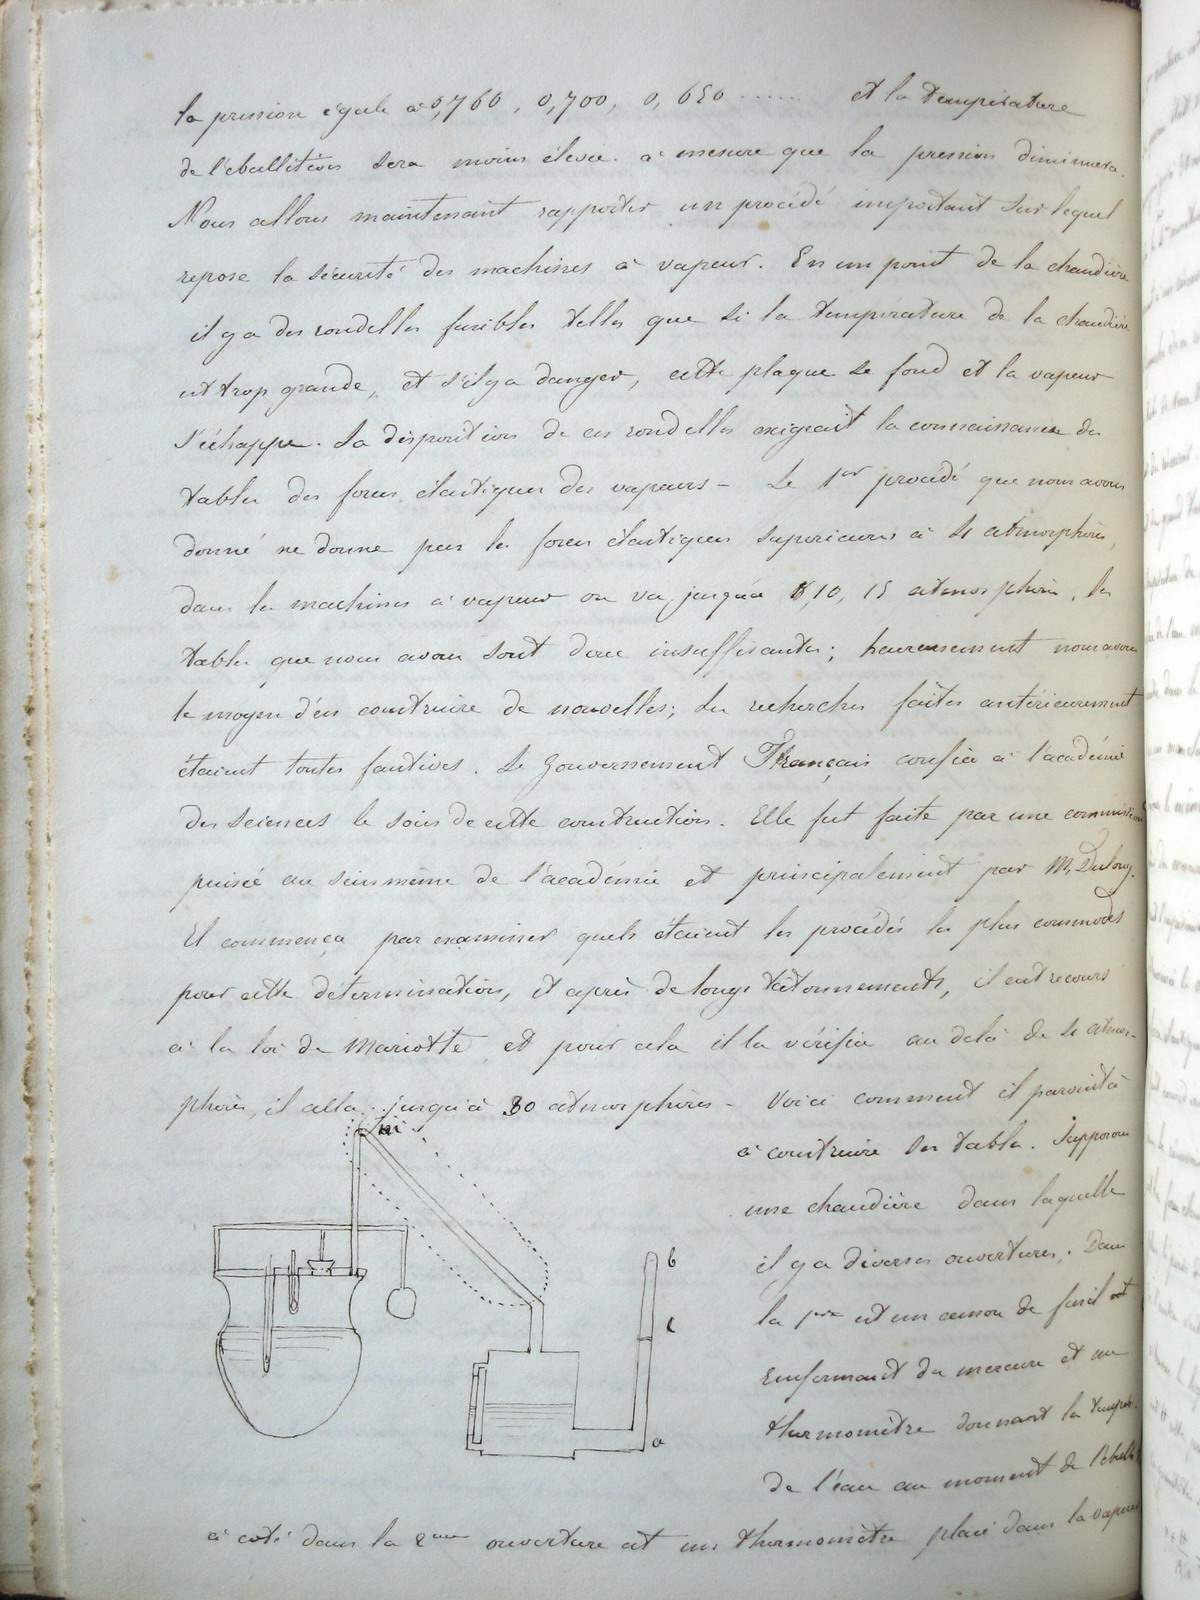 la pression égale à 0,760, 0,700, 0,650 ...... et la température
de l'ébullition sera moins élevée à mesure que la pression diminuera.
Nous allons maintenant rapporter un procédé important sur lequel
repose la sécurité des machines à vapeur. En un point de la chaudière
il y a des rondelles fusibles telles que si la température de la chaudière
est trop grande, et s'il y a danger, cette plaque se fond et la vapeur
s'échappe. La disposition de ces rondelles exigeait la connaissance des
tables des forces élastiques des vapeurs - Le 1er procédé que nous avons
donné ne donne pas les forces élastiques supérieures à 4 atmosphères,
dans les machines à vapeur on va jusqu'à 8, 10, 15 atmosphères, les
tables que nous avons sont donc insuffisantes; heureusement nous avons
le moyen d'en construire de nouvelles; les recherches faites antérieurement
étaient toutes fautives. Le Gouvernement Français confia à l'académie
des sciences le soin de cette construction. Elle fut faite par une commission
puisée au sein même de l'académie et principalement par M. Dulong.
Il commença par examiner quels étaient les procédés les plus commodes
pour cette détermination, et après de longs tâtonnements, il eut recours
à la loi de Mariotte et pour cela il la vérifia au delà de 4 atmos-
phères, il alla jusqu'à 30 atmosphères - Voici comment il parvint à
m
à construire ses tables. Supposons
une chaudière dans laquelle
il y a diverses ouvertures. Dans
b
la 1ère est un canon de fusil
c
renfermant du mercure et un
thermomètre donnant la tempér.
a
de l'eau au moment de l'ébull
à coté dans la 2eme ouverture est un thermomètre placé dans la vapeur